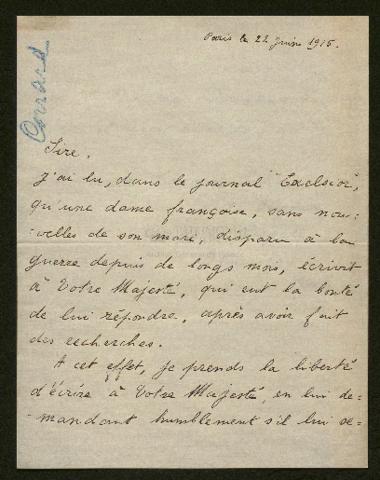 Paris le 22 Juin 1915.
Conrard
Sire,
J'ai lu, dans le journal "Excelsior",
qu'une dame françoise, sans nou:
:velles de son mari, disparu à la
guerre depuis de longs mois, écrivit
à Votre Majesté, qui eut la bonté
de lui répondre, après avoir fait
des recherches.
A cet effet, je prends la liberté
d'écrire à Votre Majesté, en lui de-
-mandant humblement s'il lui se-